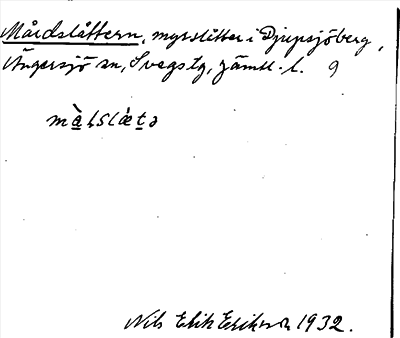 Mårdslåttern, myrslåtter i Djupsjöberg,
Ängersjö sn, Svegs tg, Jämtl. l. 9
mä̀ɫslǽtə
Nils Erik Eriksson 1932.